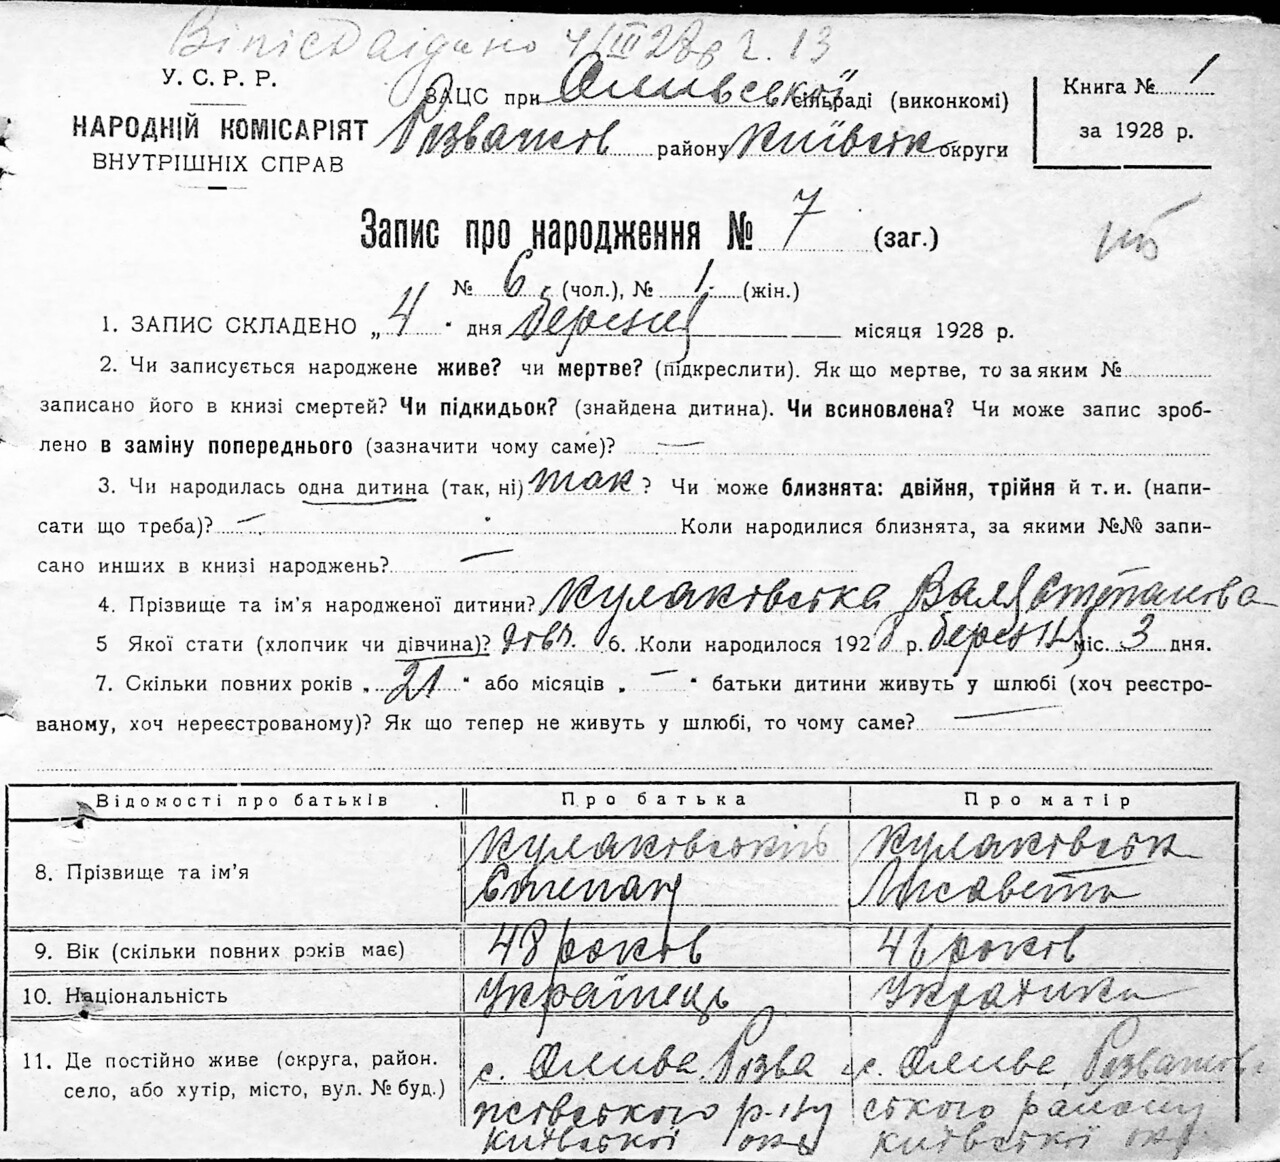 Випис видано 4/III 28 р. Ч. 13
У. С. Р. Р.
НАРОДНІЙ КОМІСАРІЯТ
ВНУТРІШНІХ СПРАВ
ЗАЦС при Оливської сільраді (виконкомі)
Розважів району Київськ округи
Книга № 1
за 1928 р.
Запис про народження № 7 (заг.)
№ 6 (чол.), № 1 (жін.)
1. ЗАПИС СКЛАДЕНО „ 4 " дня березня місяця 1928 р.
2. Чи записується народжене живе? чи мертве? (підкреслити). Як що мертве, то за яким №
записано його в книзі смертей? Чи підкидьок? (знайдена дитина). Чи всиновлена? Чи може запис зроб-
лено в заміну попереднього (зазначити чому саме)? —
3. Чи народилась одна дитина (так, ні) так ? Чи може близнята: двійня, трійня й т. и. (напи-
сати що треба)? — Коли народилися близнята, за якими №№ запи-
сано инших в книзі народжень? —
4. Прізвище та ім'я народженої дитини? Кулаковська Валя Степанова
5 Якої стати (хлопчик чи дівчина)? дівч. 6. Коли народилося 1928 р. березня міс. 3 дня.
7. Скільки повних років „ 21 " або місяців „ — " батьки дитини живуть у шлюбі (хоч реєстро-
ваному, хоч нереєстрованому)? Як що тепер не живуть у шлюбі, то чому саме? —
Відомості про батьків
Про батька
Про матір
8. Прізвище та ім'я
Кулаковський
Степан
Кулаковськ
Лисавета
9. Вік (скільки повних років має)
48 років
46 років
10. Національність
Українець
Украинка
11. Де постійно живе (округа, район.
село, або хутір, місто, вул. № буд.)
с. Олива Розва
жівського р-ну
Київської окр
с. Олива Розважів
ського району
Київської окр.